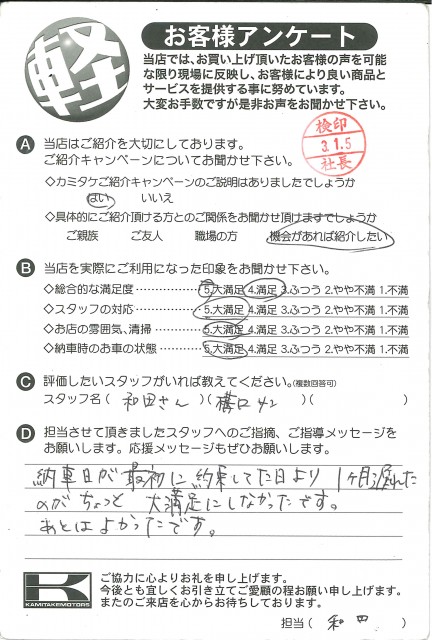 軽
お客様アンケート
当店では、お買い上げ頂いたお客様の声を可能
な限り現場に反映し、お客様により良い商品と
サービスを提供する事に努めています。
大変お手数ですが是非お声をお聞かせ下さい。
検印
3.1.5
社長
A 当店はご紹介を大切にしております。
ご紹介キャンペーンについてお聞かせ下さい。
◇カミタケご紹介キャンペーンのご説明はありましたでしょうか
はい いいえ
◇具体的にご紹介頂ける方とのご関係をお聞かせ頂けますでしょうか
ご親族 ご友人 職場の方 機会があれば紹介したい
B 当店を実際にご利用になった印象をお聞かせ下さい。
◇総合的な満足度……………5.大満足 4.満足 3.ふつう 2.やや不満 1.不満
◇スタッフの対応……………5.大満足 4.満足 3.ふつう 2.やや不満 1.不満
◇お店の雰囲気、清掃………5.大満足 4.満足 3.ふつう 2.やや不満 1.不満
◇納車時のお車の状態………5.大満足 4.満足 3.ふつう 2.やや不満 1.不満
C 評価したいスタッフがいれば教えてください。(複数回答可)
スタッフ名( 和田さん )( 溝口さん )( )
D 担当させて頂きましたスタッフへのご指摘、ご指導メッセージを
お願いします。応援メッセージもぜひお願いします。
納車日が最初に約束してた日より 1ヶ月遅れた
のがちょっと 大満足にしなかったです。
あとはよかったです。
K
KAMITAKEMOTORS
ご協力に心よりお礼を申し上げます。
今後とも宜しくお引き立てご愛顧の程お願い申し上げます。
またのご来店を心からお待ちしております。
担当( 和田 )